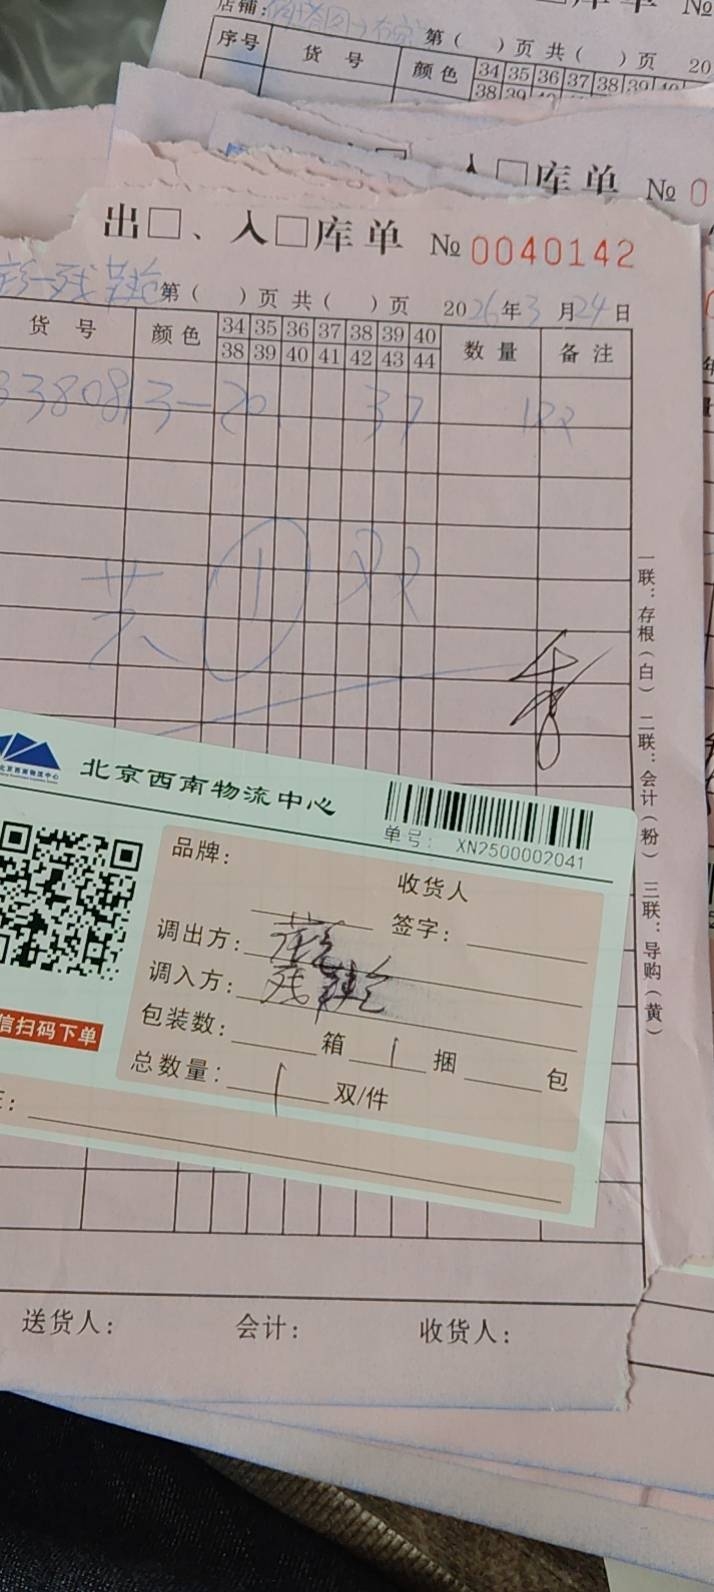 店铺:
出 入□库单 №
序号 货号 颜色 34 35 36 37 38 39 40
38 39
第( )页 共( )页 20
入□库单 № 0
出□、入□库单 № 0040142
第( )页 共( )页 2026年3月24日
货号 颜色 34 35 36 37 38 39 40 数量 备注
38 39 40 41 42 43 44
338081 3-20 37 1双
共①双
一联:存根(白) 二联:会计(粉) 三联:导购(黄)
北京西南物流中心
北京西南物流中心
单号: XN2500002041
品牌:
收货人
签字:
调出方:
调入方:
包装数: 箱 1 捆 包
总数量: 1 双/件
信扫码下单
送货人: 会计: 收货人: